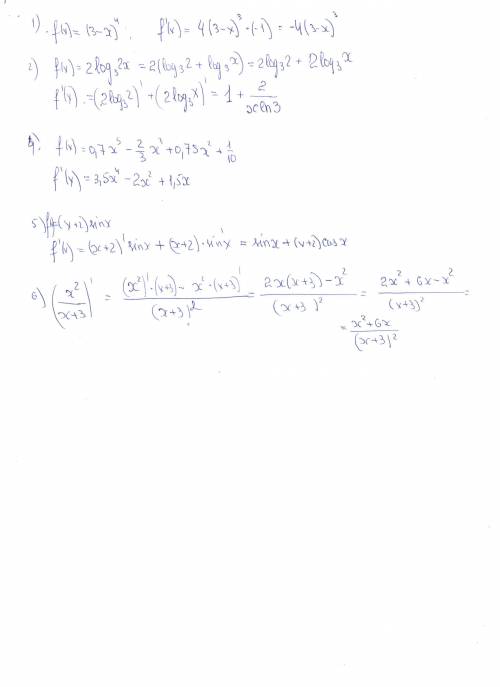 1) f(x) = (3-x)^4. f'(x) = 4(3-x)^3 · (-1) = -4(3-x)^3
2) f(x) = 2log_3 2x = 2(log_3 2 + log_3 x) = 2log_3 2 + 2log_3 x
f'(x) = (2log_3 2)' + (2log_3 x)' = 1 + 2/(x ln3)
4) f(x) = 0,7x^5 - 2/3 x^3 + 0,75x^2 + 1/10
f'(x) = 3,5x^4 - 2x^2 + 1,5x
5) f(x)=(x+2)sinx
f'(x) = (x+2)' sinx + (x+2)·sin'x = sinx + (x+2)cosx
6) (x^2/(x+3))' = ((x^2)'·(x+3) - x^2·(x+3)')/(x+3)^2 = (2x(x+3) - x^2)/(x+3)^2 = (2x^2 + 6x - x^2)/(x+3)^2 =
= (x^2+6x)/(x+3)^2